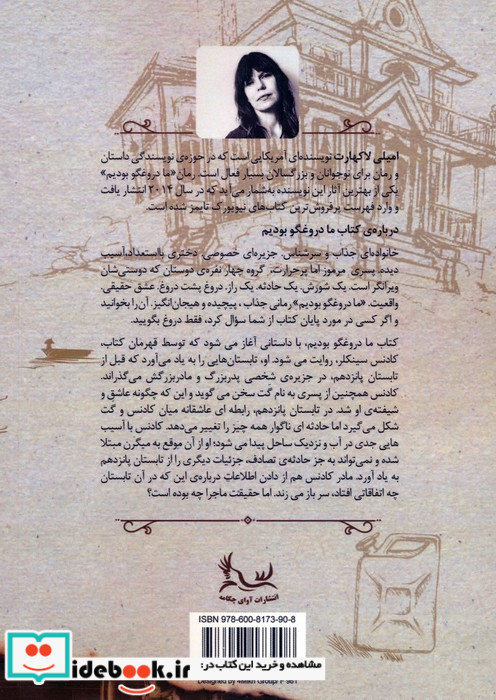 امیلی لاکهارت نویسنده‌ای آمریکایی است که در حوزه‌ی نویسندگی داستان
و رمان برای نوجوانان و بزرگسالان بسیار فعال است. رمان«ما دروغگو بودیم»
یکی از بهترین آثار این نویسنده به‌شمار می‌آید که در سال ۲۰۱۴ انتشار یافت
و وارد فهرست پرفروش‌ترین کتاب‌های نیویورک تایمز شده است.
درباره‌ی کتاب ما دروغگو بودیم
خانواده‌ای جذاب و سرشناس. جزیره‌ای خصوصی. دختری بااستعداد، آسیب
دیده. پسری مرموز اما پرحرارت. گروه چهار نفره‌ی دوستان که دوستی‌شان
ویرانگر است. یک شورش. یک حادثه. یک راز. دروغ پشت دروغ. عشق حقیقی.
واقعیت. «ما دروغگو بودیم» رمانی جذاب، پیچیده و هیجان‌انگیز. آن‌را بخوانید
و اگر کسی در مورد پایان کتاب از شما سؤال کرد، فقط دروغ بگویید.
کتاب ما دروغگو بودیم، با داستانی آغاز می شود که توسط قهرمان کتاب،
کادنس سینکلر، روایت می شود. او، تابستان‌هایی را به یاد می‌آورد که قبل از
تابستان پانزدهم، در جزیره‌ی شخصی پدربزرگ و مادربزرگش می‌گذراند.
کادنس همچنین از پسری به نام گت سخن می گوید و این که چگونه عاشق و
شیفته‌ی او شد. در تابستان پانزدهم، رابطه ای عاشقانه میان کادنس و گت
شکل می‌گیرد اما حادثه ای ناگوار همه چیز را تغییر می‌دهد. کادنس با آسیب
هایی جدی در آب و نزدیک ساحل پیدا می شود؛ او از آن موقع به میگرن مبتلا
شده و نمی‌تواند به جز حادثه‌ی تصادف، جزئیات دیگری را از تابستان پانزدهم
به یاد آورد. مادر کادنس هم از دادن اطلاعات درباره‌ی این که در آن تابستان
چه اتفاقاتی افتاد، سر باز می زند. اما حقیقت ماجرا چه بوده است؟
انتشارات آوای چکامه
ISBN 978-600-8173-90-8
idebook.ir
مشاهده و خرید این کتاب در:
Designed by 4Men Group/ P 961